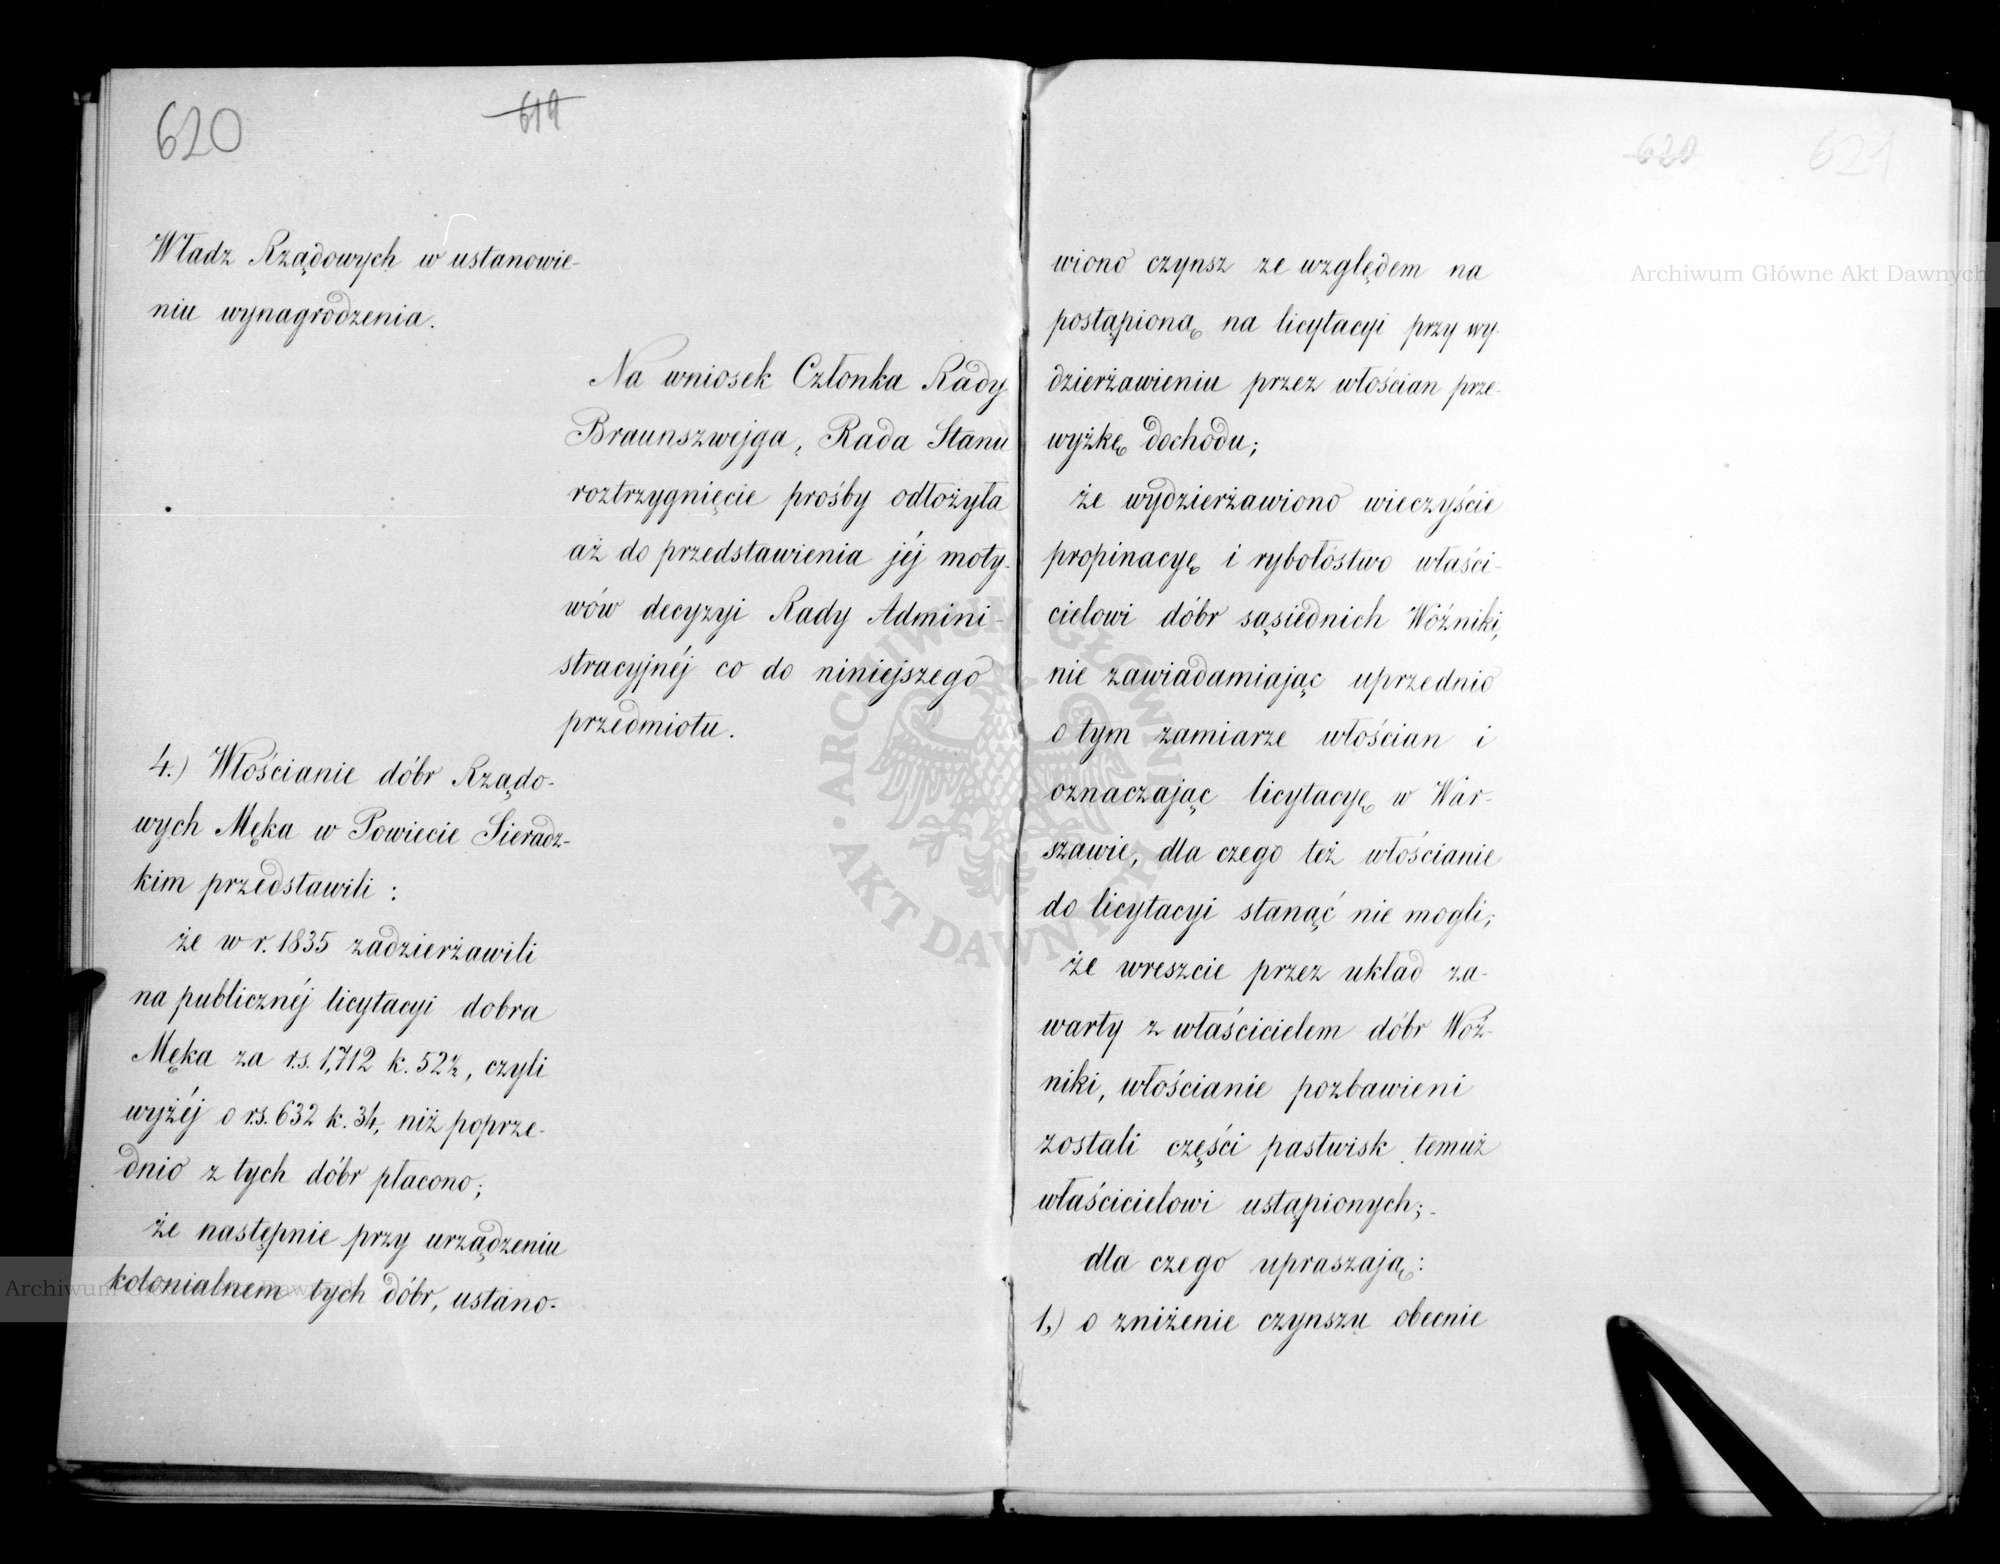 620
619
Władz Rządowych w ustanowie-
niu wynagrodzenia.
Na wniosek Członka Rady
Braunszwejga, Rada Stanu
roztrzygnięcie prośby odłożyła
aż do przedstawienia jéj moty-
wów decyzyi Rady Admini-
stracyjnéj co do niniejszego
przedmiotu.
4.) Włościanie dóbr Rządo-
wych Męka w Powiecie Sieradz-
kim przedstawili:
że w r. 1835 zadzierżawili
na publicznéj licytacyi dobra
Męka za r.s. 1,712 k. 52½, czyli
wyżéj o rs. 632 k. 34, niż poprze-
dnio z tych dóbr płacono;
że następnie przy urządzeniu
kolonialnem tych dóbr, ustano-
620
621
wiono czynsz ze względem na
postąpioną na licytacyi przy wy-
dzierżawieniu przez włościan prze-
wyżkę dochodu;
że wydzierżawiono wieczyście
propinacyę i rybołóstwo właści-
cielowi dóbr sąsiednich Woźniki,
nie zawiadamiając uprzednio
o tym zamiarze włościan i
oznaczając licytacyę w War-
szawie, dla czego też włościanie
do licytacyi stanąć nie mogli;
że wreszcie przez układ za-
warty z właścicielem dóbr Woź-
niki, włościanie pozbawieni
zostali części pastwisk temuż
właścicielowi ustąpionych;-
dla czego upraszają:
1,) o zniżenie czynszu obecnie
Archiwum Główne Akt Dawnych
Archiwum Główne Akt Dawnych
ARCHIWUM GŁÓWNE AKT DAWNYCH